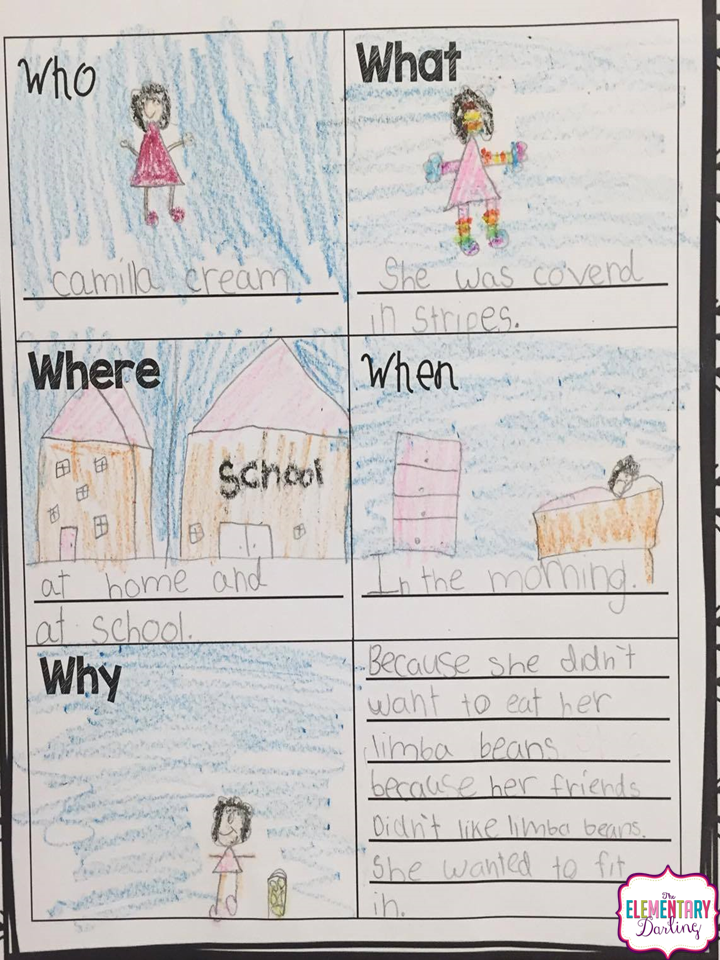 Who
camilla cream
What
She was coverd
in stripes.
Where
School
at home and
at school.
When
In the morning.
Why
Because she didn't
want to eat her
limba beans
because her friends
Didn't like limba beans.
She wanted to fit
in.
The
ELEMENTARY
Darling